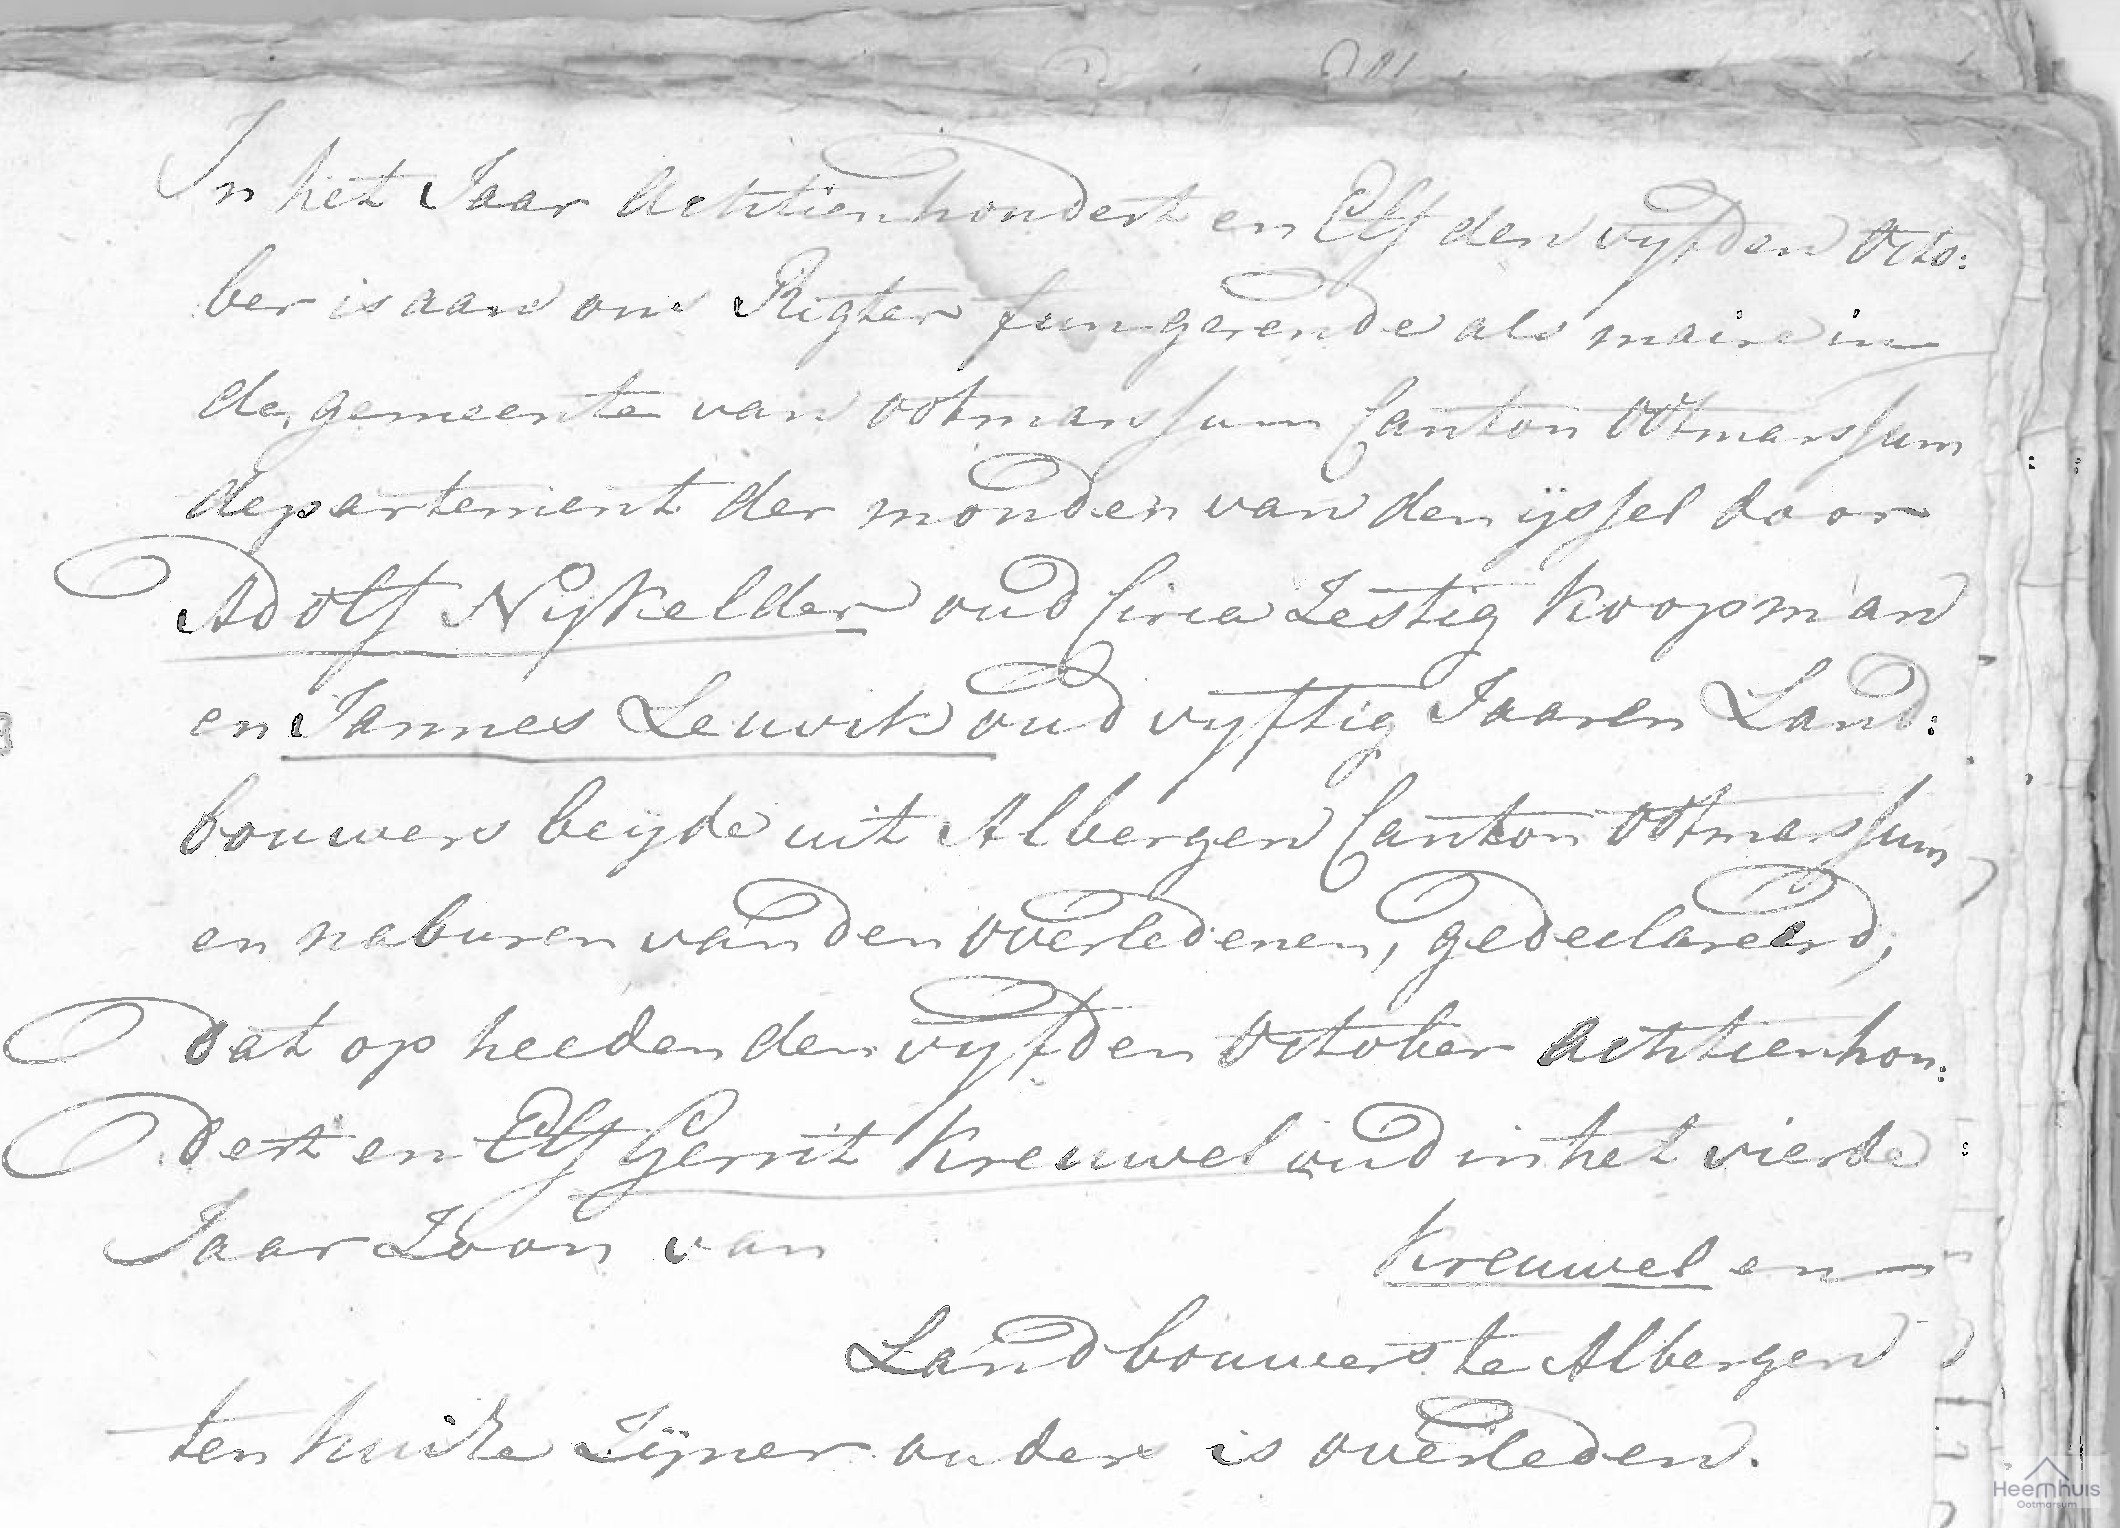 In het Jaar Achttienhondert en Elf den vyfden Octo:
ber is aan ons Rigter fungerende als maire in
de gemeente van ootmarssum Canton Ootmarssum
departement der monden van den ijssel door
Adolf Nykelder oud Circa Zestig Koopman
en Jannes Leuvik oud vyftig Jaaren Land:
bouwers beyde uit Albergen Canton Ootmarssum
en naburen van den overledenen, gedeclareerd,
dat op heeden den vyfden October Achttienhon:
dert en Elf Gerrit Kreuwel oud in het vierde
Jaar Zoon van Kreuwel en
Landbouwers te Albergen
ten huize Zijner ouders is overleden.
Heemhuis
Ootmarsum